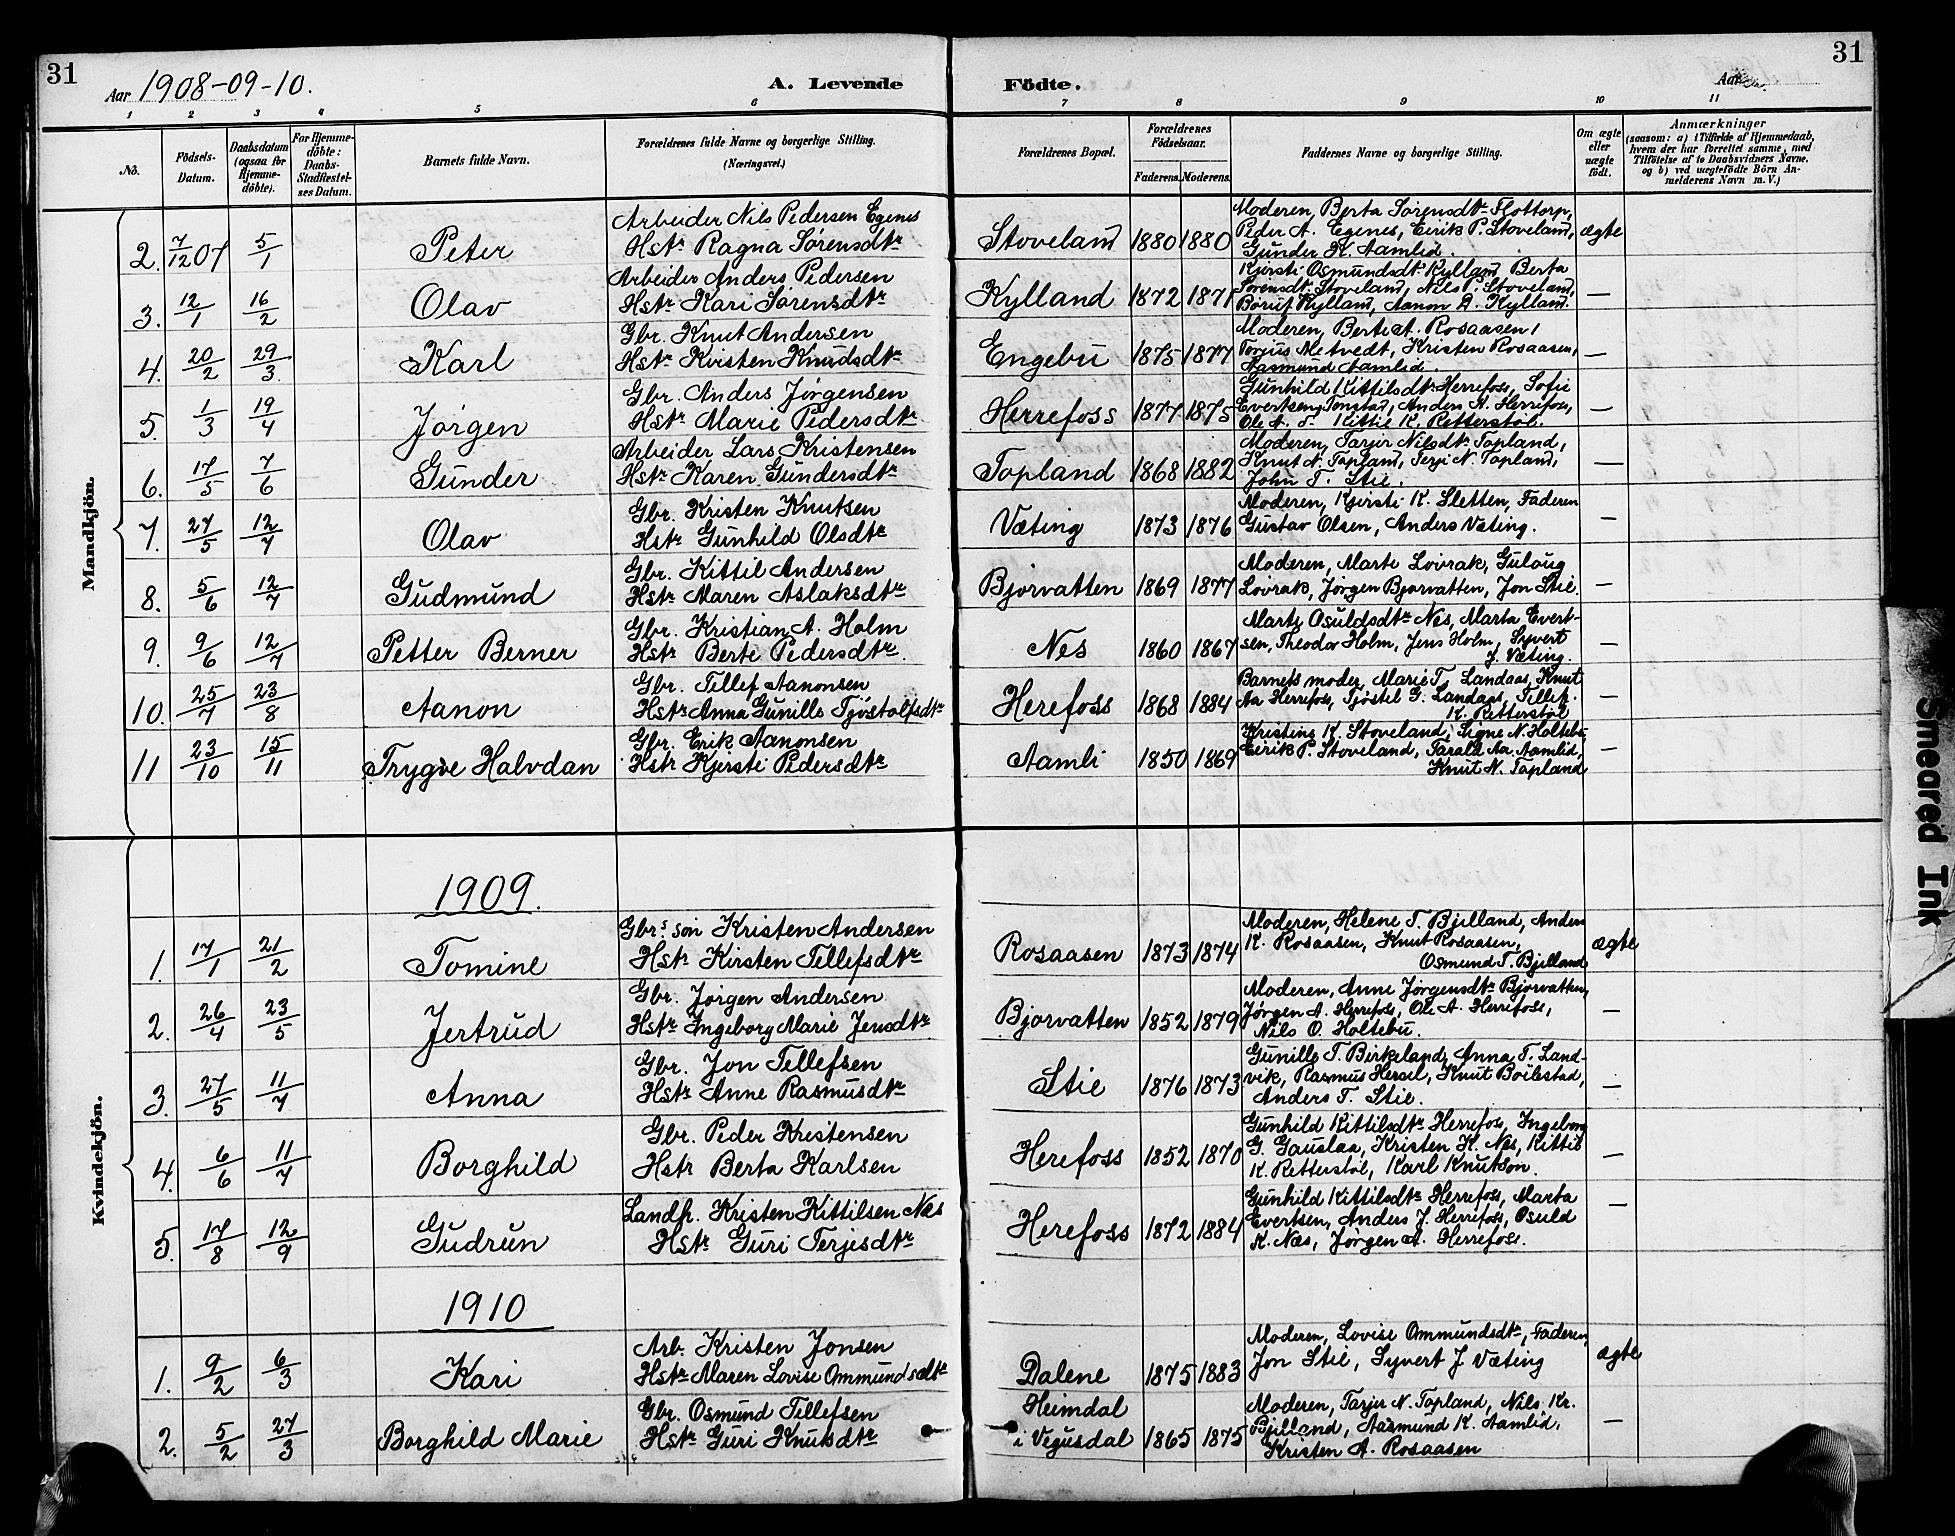 31
31
Aar 1908-09-10.
A. Levende Födte.
Aar
1 2 3 4 5 6 7 8 9 10 11
No.
Födsels-Datum.
Daabsdatum (ogsaa for Hjemme-döbte).
For Hjemme-döbte: Daabs-Stadfæstel-ses Datum.
Barnets fulde Navn.
Forældrenes fulde Navne og borgerlige Stilling. (Næringsvei.)
Forældrenes Bopæl.
Forældrenes Födselsaar.
Faderens. Moderens.
Faddernes Navne og borgerlige Stilling.
Om ægte eller uægte födt.
Anmærkninger
(saasom: a) i Tilfælde af Hjemmedaab,
hvem der har forrettet samme, med
Tilföielse af to Daabsvidners Navne,
og b) ved uægtefödte Börn An-
melderens Navn m. V.)
Mandkjön.
2. 7/12 07 5/1 Peter
Arbeider Nils Pedersen Egenes
Hstr Ragna Sørensdtr
Stoveland 1880 1880
Moderen, Berta Sørensdtr Flottorp,
Peder A. Egenes, Eirik P. Stoveland,
Gunder K. Aamlid.
ægte
3. 12/1 16/2 Olav
Arbeider Anders Pedersen
Hstr Kari Sørensdtr
Kylland 1872 1871
Kjersti Osmundsdtr Kylland, Berta
Sørensdtr Stoveland, Nils P. Stoveland,
Kylland, Aanon A. Kylland.
—
4. 20/2 29/3 Karl
Gbr. Knut Andersen
Hstr Kristen Knudsdtr
Engebu 1875 1877
Moderen, Berte A. Rosaasen,
Torjus Metvedt, Kristen Rosaasen,
Aasmund Aamlid.
—
5. 1/3 19/4 Jørgen
Gbr. Anders Jørgensen
Hstr Marie Pedersdtr
Herrefoss 1877 1875
Gunhild Kittilsdtr Herrefoss, Sofie
Evertseng Tonstad, Anders A. Herrefoss,
Ole A. T. Kittil K. Retterstøl.
—
6. 17/5 7/6 Gunder
Arbeider Lars Kristensen
Hstr Karen Gundersdtr
Topland 1868 1882
Moderen, Tarjer Nilsdtr Topland,
Knut N. Topland, Terje N. Topland,
John T. Stie.
—
7. 27/5 12/7 Olav
Gbr. Kristen Knutsen
Hstr Gunhild Olsdtr
Væting 1873 1876
Moderen, Kjersti K. Sletten, Faderen
Gustav Olsen, Anders Væting.
—
8. 5/6 12/7 Gudmund
Gbr. Kittil Andersen
Hstr Maren Aslaksdtr
Bjorvatten 1869 1877
Moderen, Marte Lovrak, Gulaug
Lovrak, Jørgen Bjorvatten, Jon Stie.
—
9. 9/6 12/7 Petter Berner
Gbr. Kristian A. Holm
Hstr Berte Pedersdtr.
Nes 1860 1867
Marte Osuldsdtr Nes, Marta Evert-
sen, Theodor Holm, Jens Holm, Syvert
J. Væting.
—
10. 25/7 23/8 Aanon
Gbr. Tellef Aanonsen
Hstr Anna Gunille Tjøstolfsdtr
Herefoss 1868 1884
Barnets moder, Marie T. Landaas, Knut
Aa Herrefoss, Tjøstel G. Landaas, Tellef
K. Retterstøl
—
11 23/10 15/11 Trygve Halvdan
Gbr. Erik Aanonsen
Hstr Kjersti Pedersdtr
Aamli 1850 1869
Kristine K. Stoveland, Signe N. Holtebu,
Eirik P. Stoveland, Tarald Aa. Aamlid,
Knut N. Topland
—
Kvindekjön.
1909.
1. 17/1 21/2 Tomine
Gbrs son Kristen Andersen
Hstr Kirsten Tellefsdtr
Rosaasen 1873 1874
Moderen, Helene T. Bjelland, Anders
K. Rosaasen, Knut Rosaasen,
Osmund T. Bjelland
ægte
2. 26/4 23/5 Jertrud
Gbr. Jørgen Andersen
Hstr Ingeborg Marie Jensdtr
Bjorvatten 1852 1879
Moderen, Anne Jørgensdtr Bjorvatten,
Jørgen A. Herrefoss, Ole A. Herrefoss,
Nils O. Holtebu.
—
3. 27/5 11/7 Anna
Gbr. Jon Tellefsen
Hstr Anne Rasmusdtr
Stie 1876 1873
Gunille T. Birkeland, Anna T. Land-
vik, Rasmus Hersel, Knut Boilestad,
Anders T. Stie.
—
4. 6/6 11/7 Borghild
Gbr. Peder Kristensen
Hstr Berta Karlsen
Herefoss 1852 1870
Gunhild Kittilsdtr Herrefos, Ingeborg
G. Gauslaa, Kristen K. Nes, Kittil
K. Retterstøl, Karl Knutson.
—
5. 17/8 12/9 Gudrun
Landh. Kristen Kittilsen Næs
Hstr Guri Terjesdtr
Herefoss 1872 1884
Gunhild Kittilsdtr Herrefoss, Marta
Evertsen, Anders J. Herrefoss, Osuld
K. Næs, Jørgen A. Herrefoss.
—
1910
1. 9/2 6/3 Kari
Arb. Kristen Jonsen
Hstr Maren Lovise Ommundsdtr
Dalene 1875 1883
Moderen, Lovise Ommundsdtr, Faderen,
Jon Stie, Syvert J. Væting
ægte
2. 5/2 27/3 Borghild Marie
Gbr. Osmund Tellefsen
Hstr Guri Knutsdtr
Heimdal
i Vegusdal 1865 1875
Moderen, Tarjer N. Topland, Nils Kr.
Bjelland, Aasmund K. Aamlid,
Kristen A. Rosaasen
—
Smeared Ink